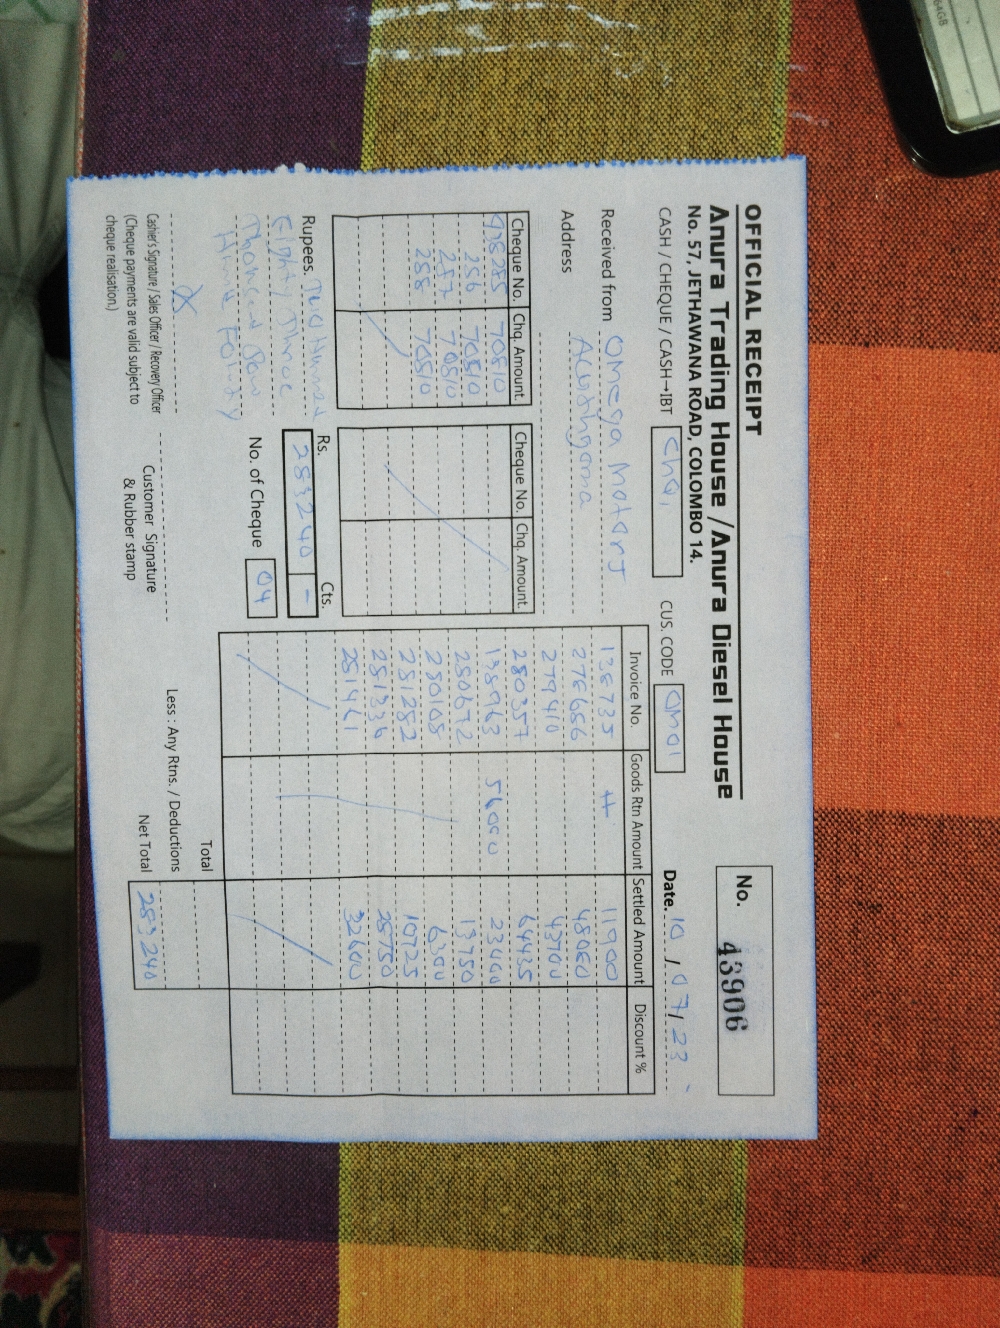 OFFICIAL RECEIPT
Anura Trading House / Anura Diesel House
No. 57, JETHAWANA ROAD, COLOMBO 14.
No. 43906
CASH / CHEQUE / CASH→IBT Chq, CUS. CODE OM01 Date. 10 / 07 / 23
Received from Omega Motors
Address
Cheque No. Chq. Amount. Cheque No. Chq. Amount.
928285 70810
256 70810
257 70810
258 70810
Invoice No. Goods Rtn Amount Settled Amount Discount %
138735 11900
278686 48060
279410 43700
280357 64435
138963 56000 23400
280672 13750
280108 6300
281282 10725
281336 28750
281461 32600
Rupees.
Eighty Three
Rs. Cts.
283240 -
No. of Cheque 04
Total
Less : Any Rtns. / Deductions
Net Total 283240
Cashier's Signature / Sales Officer / Recovery Officer
(Cheque payments are valid subject to
cheque realisation.)
Customer Signature
& Rubber stamp
64GB